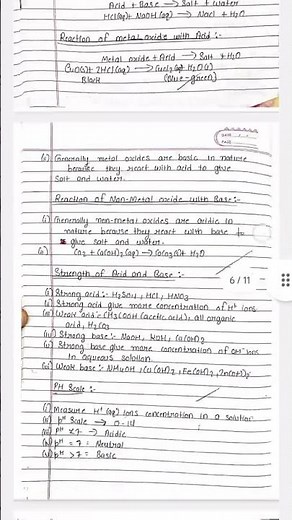 Acid + Base → Salt + Water
HCl(aq) + NaOH(aq) → NaCl + H2O
Reaction of metal oxide with Acid :-
Metal oxide + Acid → Salt + H2O
CuO(s) + 2HCl(aq) → CuCl2(aq) + H2O(l)
Black (Blue-green)
DATE
PAGE
(i) Generally metal oxides are basic in nature
because they react with acid to give
salt and water.
Reaction of Non-Metal oxide with Base:-
(i) Generally non-metal oxides are acidic in
nature because they react with base to
give salt and water.
(ii) CO2 + Ca(OH)2(aq) → CaCO3(s) + H2O
Strength of Acid and Base :-
6/11
(i) Strong acid:- H2SO4, HCl, HNO3
(ii) Strong acid give more concentration of H+ ions
(iii) Weak acid:- CH3COOH (acetic acid), all organic
acid, H2CO3
(iv) Strong base:- NaOH, KOH, Ca(OH)2
(v) Strong base give more concentration of OH- ions
in aqueous solution.
(vi) Weak base:- NH4OH, Cu(OH)2, Fe(OH)2, Zn(OH)2
PH Scale :-
(i) Measure H+(aq) ions concentration in a solution
(ii) pH Scale → 0-14
(iii) PH < 7 → Acidic
(iv) pH = 7 = Neutral
(v) pH > 7 = Basic